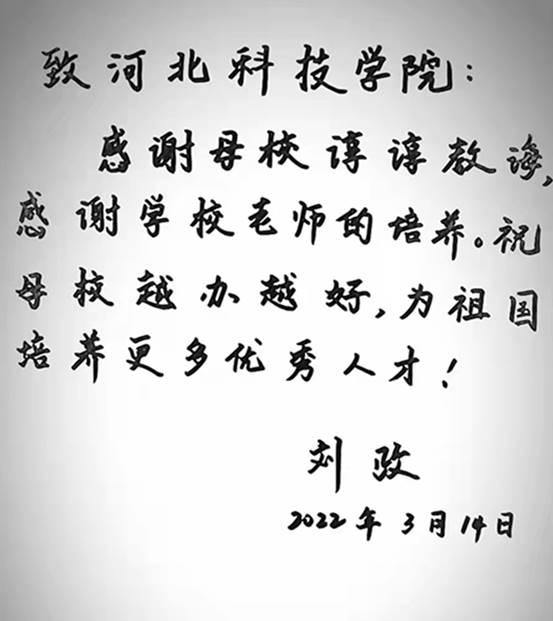 致河北科技学院：
感谢母校谆谆教诲，
感谢学校老师的培养。祝
母校越办越好，为祖国
培养更多优秀人才！
刘政
2022年3月14日